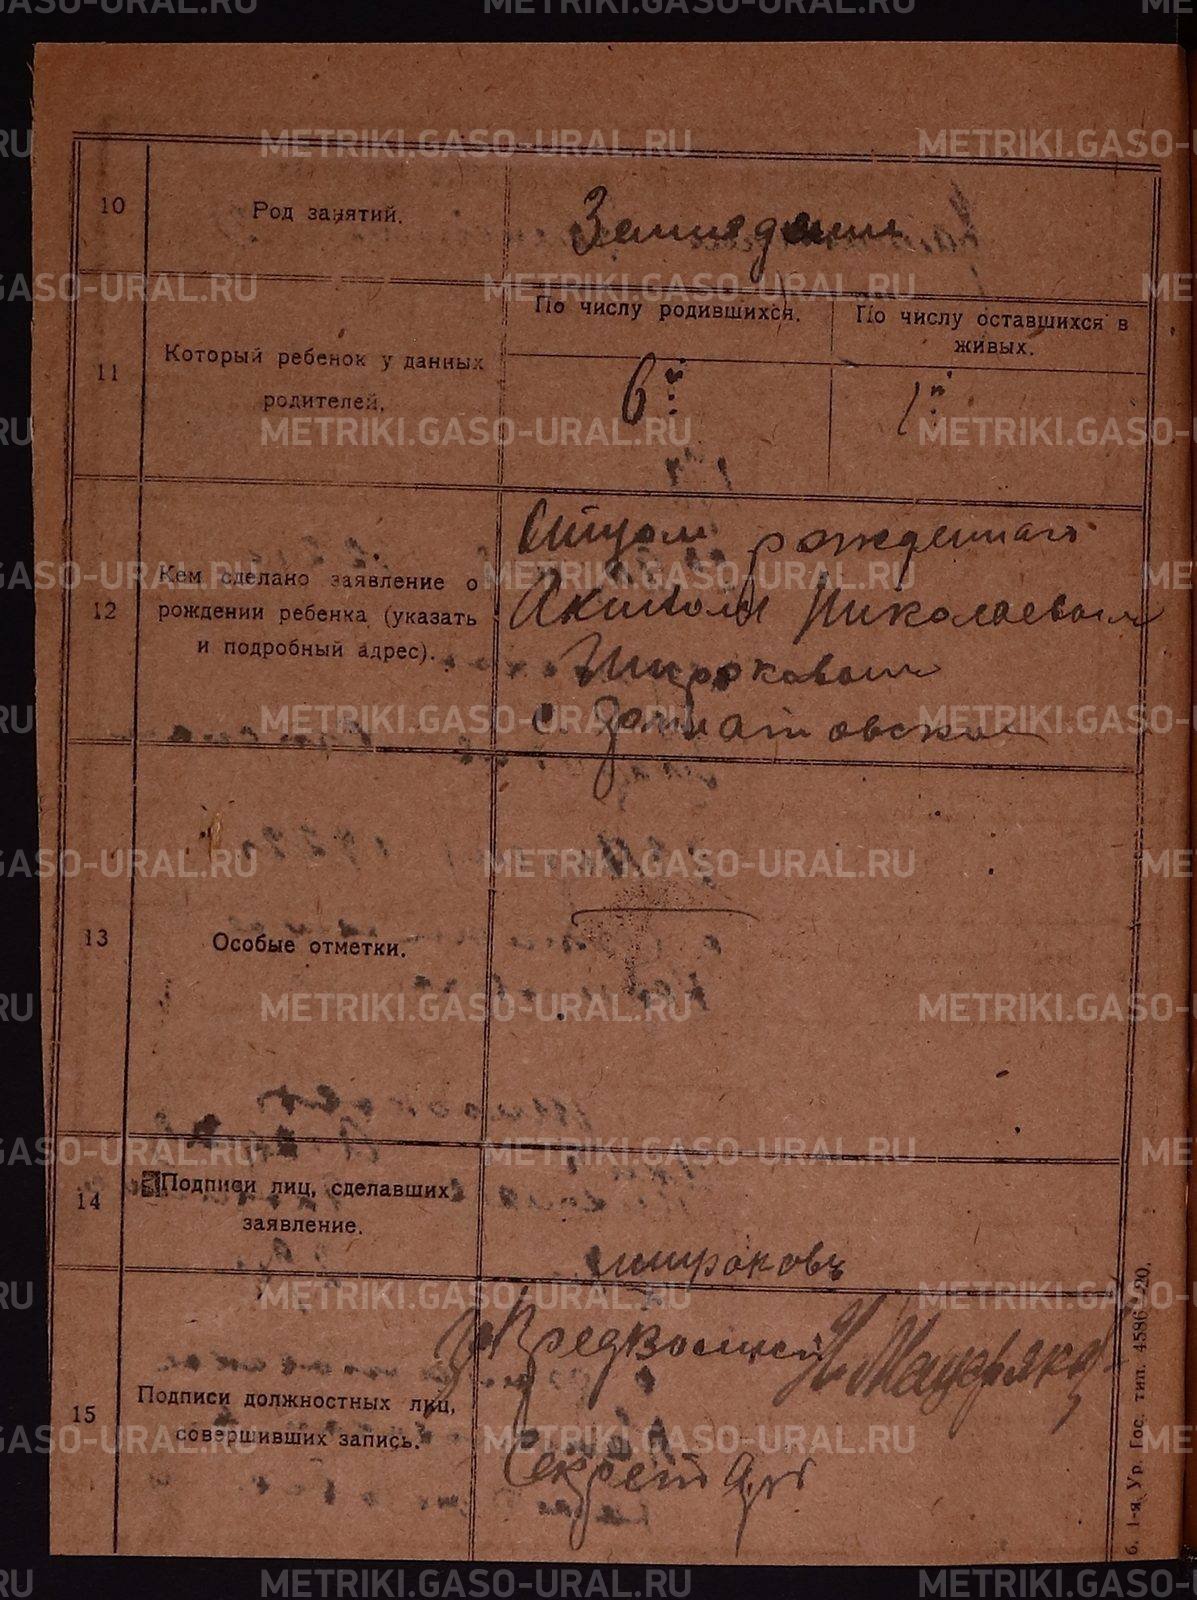 METRIKI.GASO-URAL.RU
10
Род занятий.
Земледелие
11
Который ребенок у данных
родителей.
По числу родившихся.
По числу оставшихся в
живых.
6й
1й
12
Кем сделано заявление о
рождении ребенка (указать
и подробный адрес).
Отцом рожденнаго
Николаевым
Широковым
с.
13
Особые отметки.
14
Подписи лиц, сделавших
заявление.
широковъ
15
Подписи должностных лиц,
совершивших запись.
Секретарь
6. 1-я Ур. Гос. тип. 4586—20.